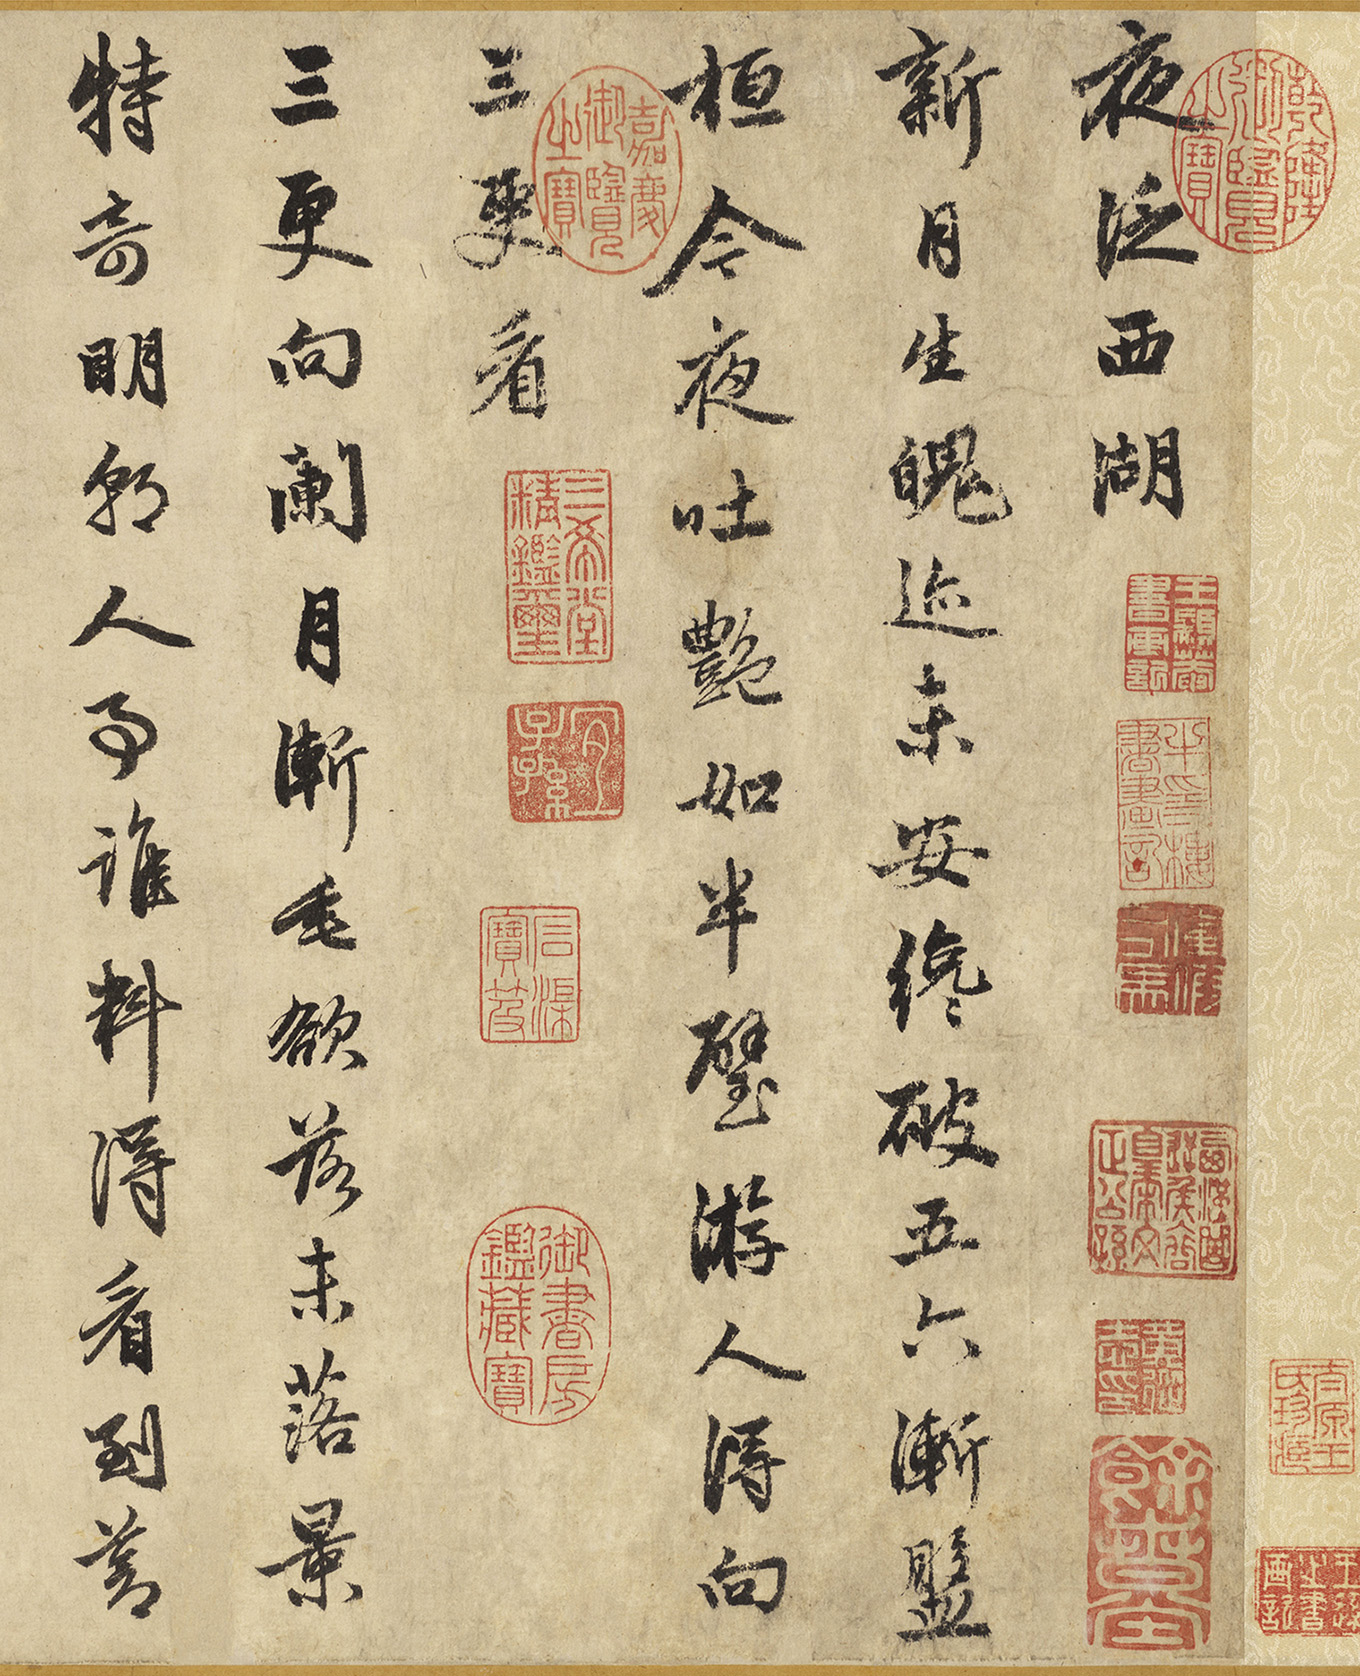 乾隆御覽之寶
夜泛西湖
新月生魄迹未安纔破五六漸盤
桓今夜吐艷如半璧游人得向
三更看
嘉慶御覽之寶
三希堂精鑑璽
宜子孫
石渠寶笈
御書房鑑藏寶
三更向闌月漸垂欲落未落景
特奇明朝人事誰料得看到蒼